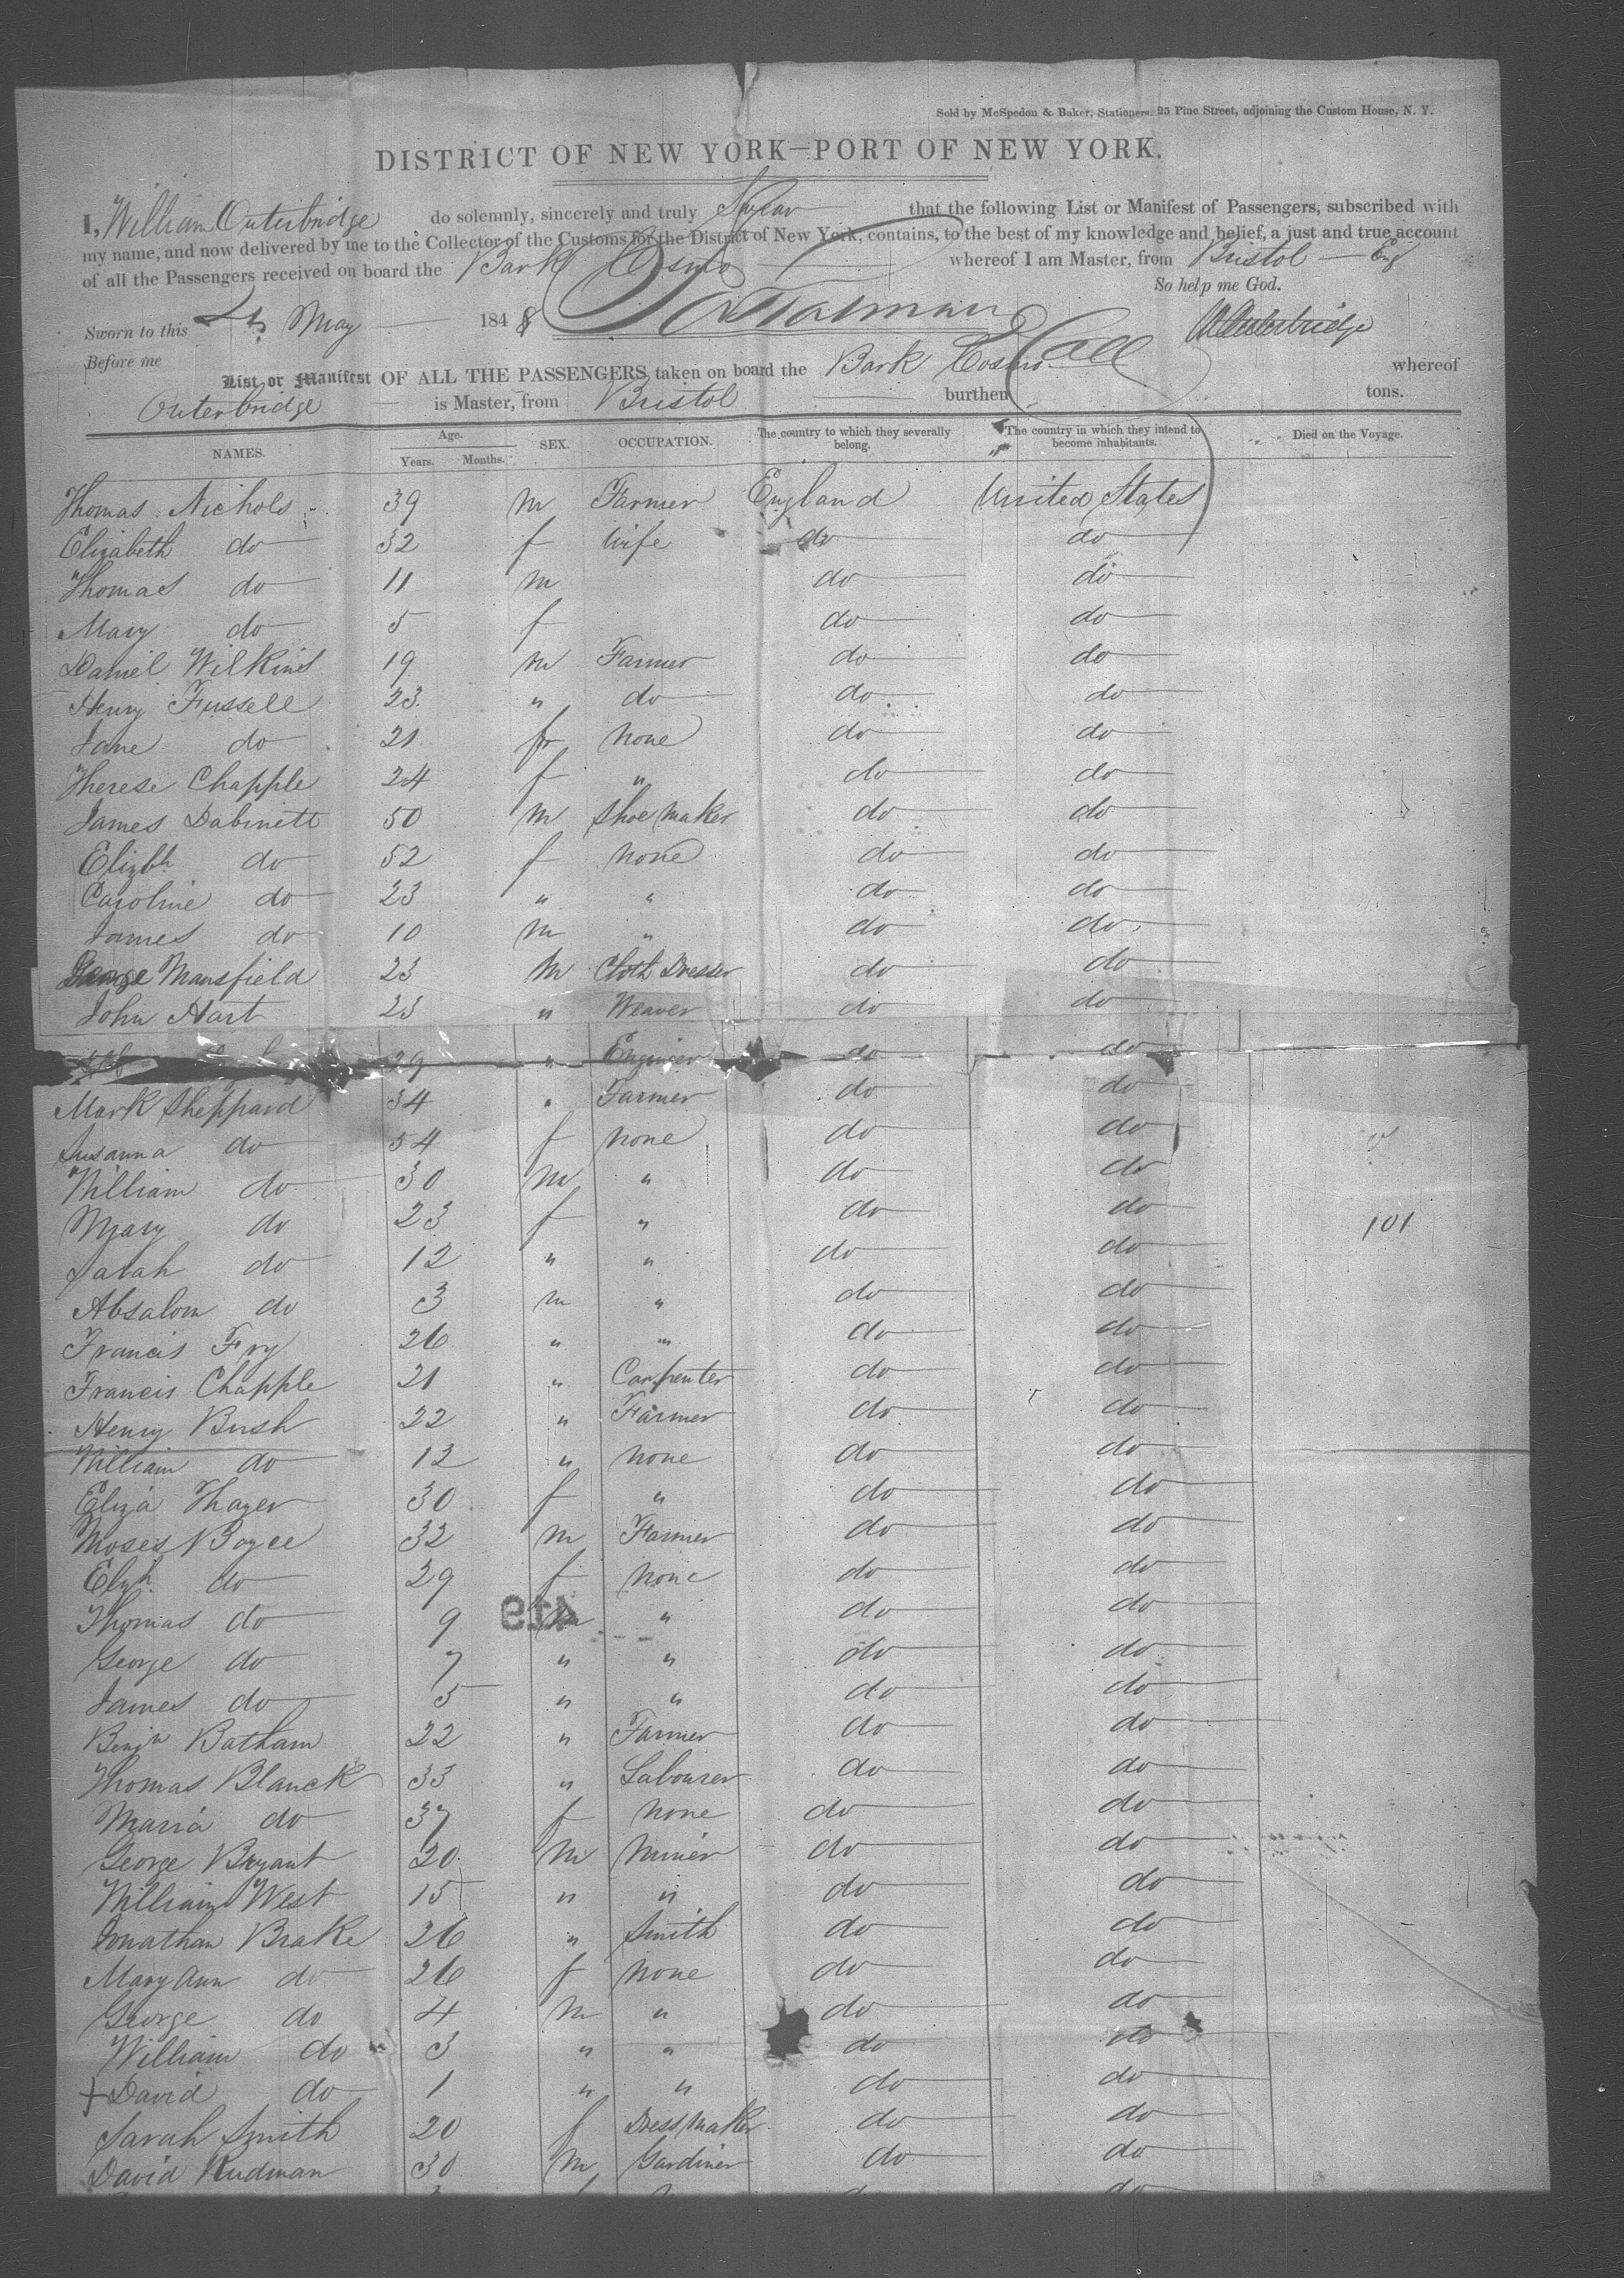 Sold by McSpedon & Baker, Stationers, 25 Pine Street, adjoining the Custom House, N. Y.
DISTRICT OF NEW YORK—PORT OF NEW YORK.
I, William Outerbridge do solemnly, sincerely and truly Swear that the following List or Manifest of Passengers, subscribed with
my name, and now delivered by me to the Collector of the Customs for the District of New York, contains, to the best of my knowledge and belief, a just and true account
of all the Passengers received on board the Bark Cosmo whereof I am Master, from Bristol — Eng
So help me God.
Sworn to this May 1848 WOuterbridge
Before me
List or Manifest OF ALL THE PASSENGERS taken on board the Bark Cosmo whereof
Outerbridge is Master, from Bristol burthen tons.
NAMES. Age. Years. Months. SEX. OCCUPATION. The country to which they severally belong. The country in which they intend to become inhabitants. Died on the Voyage.
Thomas Nichols 39 m Farmer England United States
Elizabeth do 32 f wife do do
Thomas do 11 m do do
Mary do 5 f do do
Daniel Wilkins 19 m Farmer do do
Henry Fussell 23 " do do do
Jane do 21 f none do do
Therese Chapple 24 f " do do
James Dabinett 50 m Shoe maker do do
Elizbh do 52 f none do do
Caroline do 23 " " do do
James do 10 m " do do
George Mansfield 23 m Cloth Dresser do do
John Hart 23 " Weaver do do
29 " Enginer do do
Mark Sheppard 34 " Farmer do do
Susanna do 54 f none do do
William do 30 m " do do
Mary do 23 f " do do 101
Sarah do 12 " " do do
Absalom do 3 m " do do
Francis Fry 26 " " do do
Francis Chapple 21 " Carpenter do do
Henry Bush 22 " Farmer do do
William do 12 " none do do
Eliza Thayer 30 f " do do
Moses Boyce 32 m Farmer do do
Elizh do 29 f none do do
Thomas do 9 m " do do
George do 7 " " do do
James do 5 " " do do
Benjn Batham 22 " Farmer do do
Thomas Blanck 33 " Labourer do do
Maria do 37 f none do do
George Bryant 20 m minier do do
William West 15 " " do do
Jonathan Brake 26 " Smith do do
Mary Ann do 26 f none do do
George do 4 m " do do
William do 3 " " do do
+ David do 1 " " do do
Sarah Smith 20 f Dress maker do do
David Rudman 30 m Gardiner do do